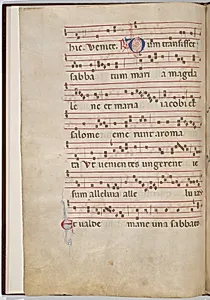 hic. Venite. R Dum transisset
sabba tum mari a magda
le ne et maria iacobi et
salome eme runt aroma
ta ut venientes ungerent ie
sum alleluia alle lu ia
Et valde mane una sabbato